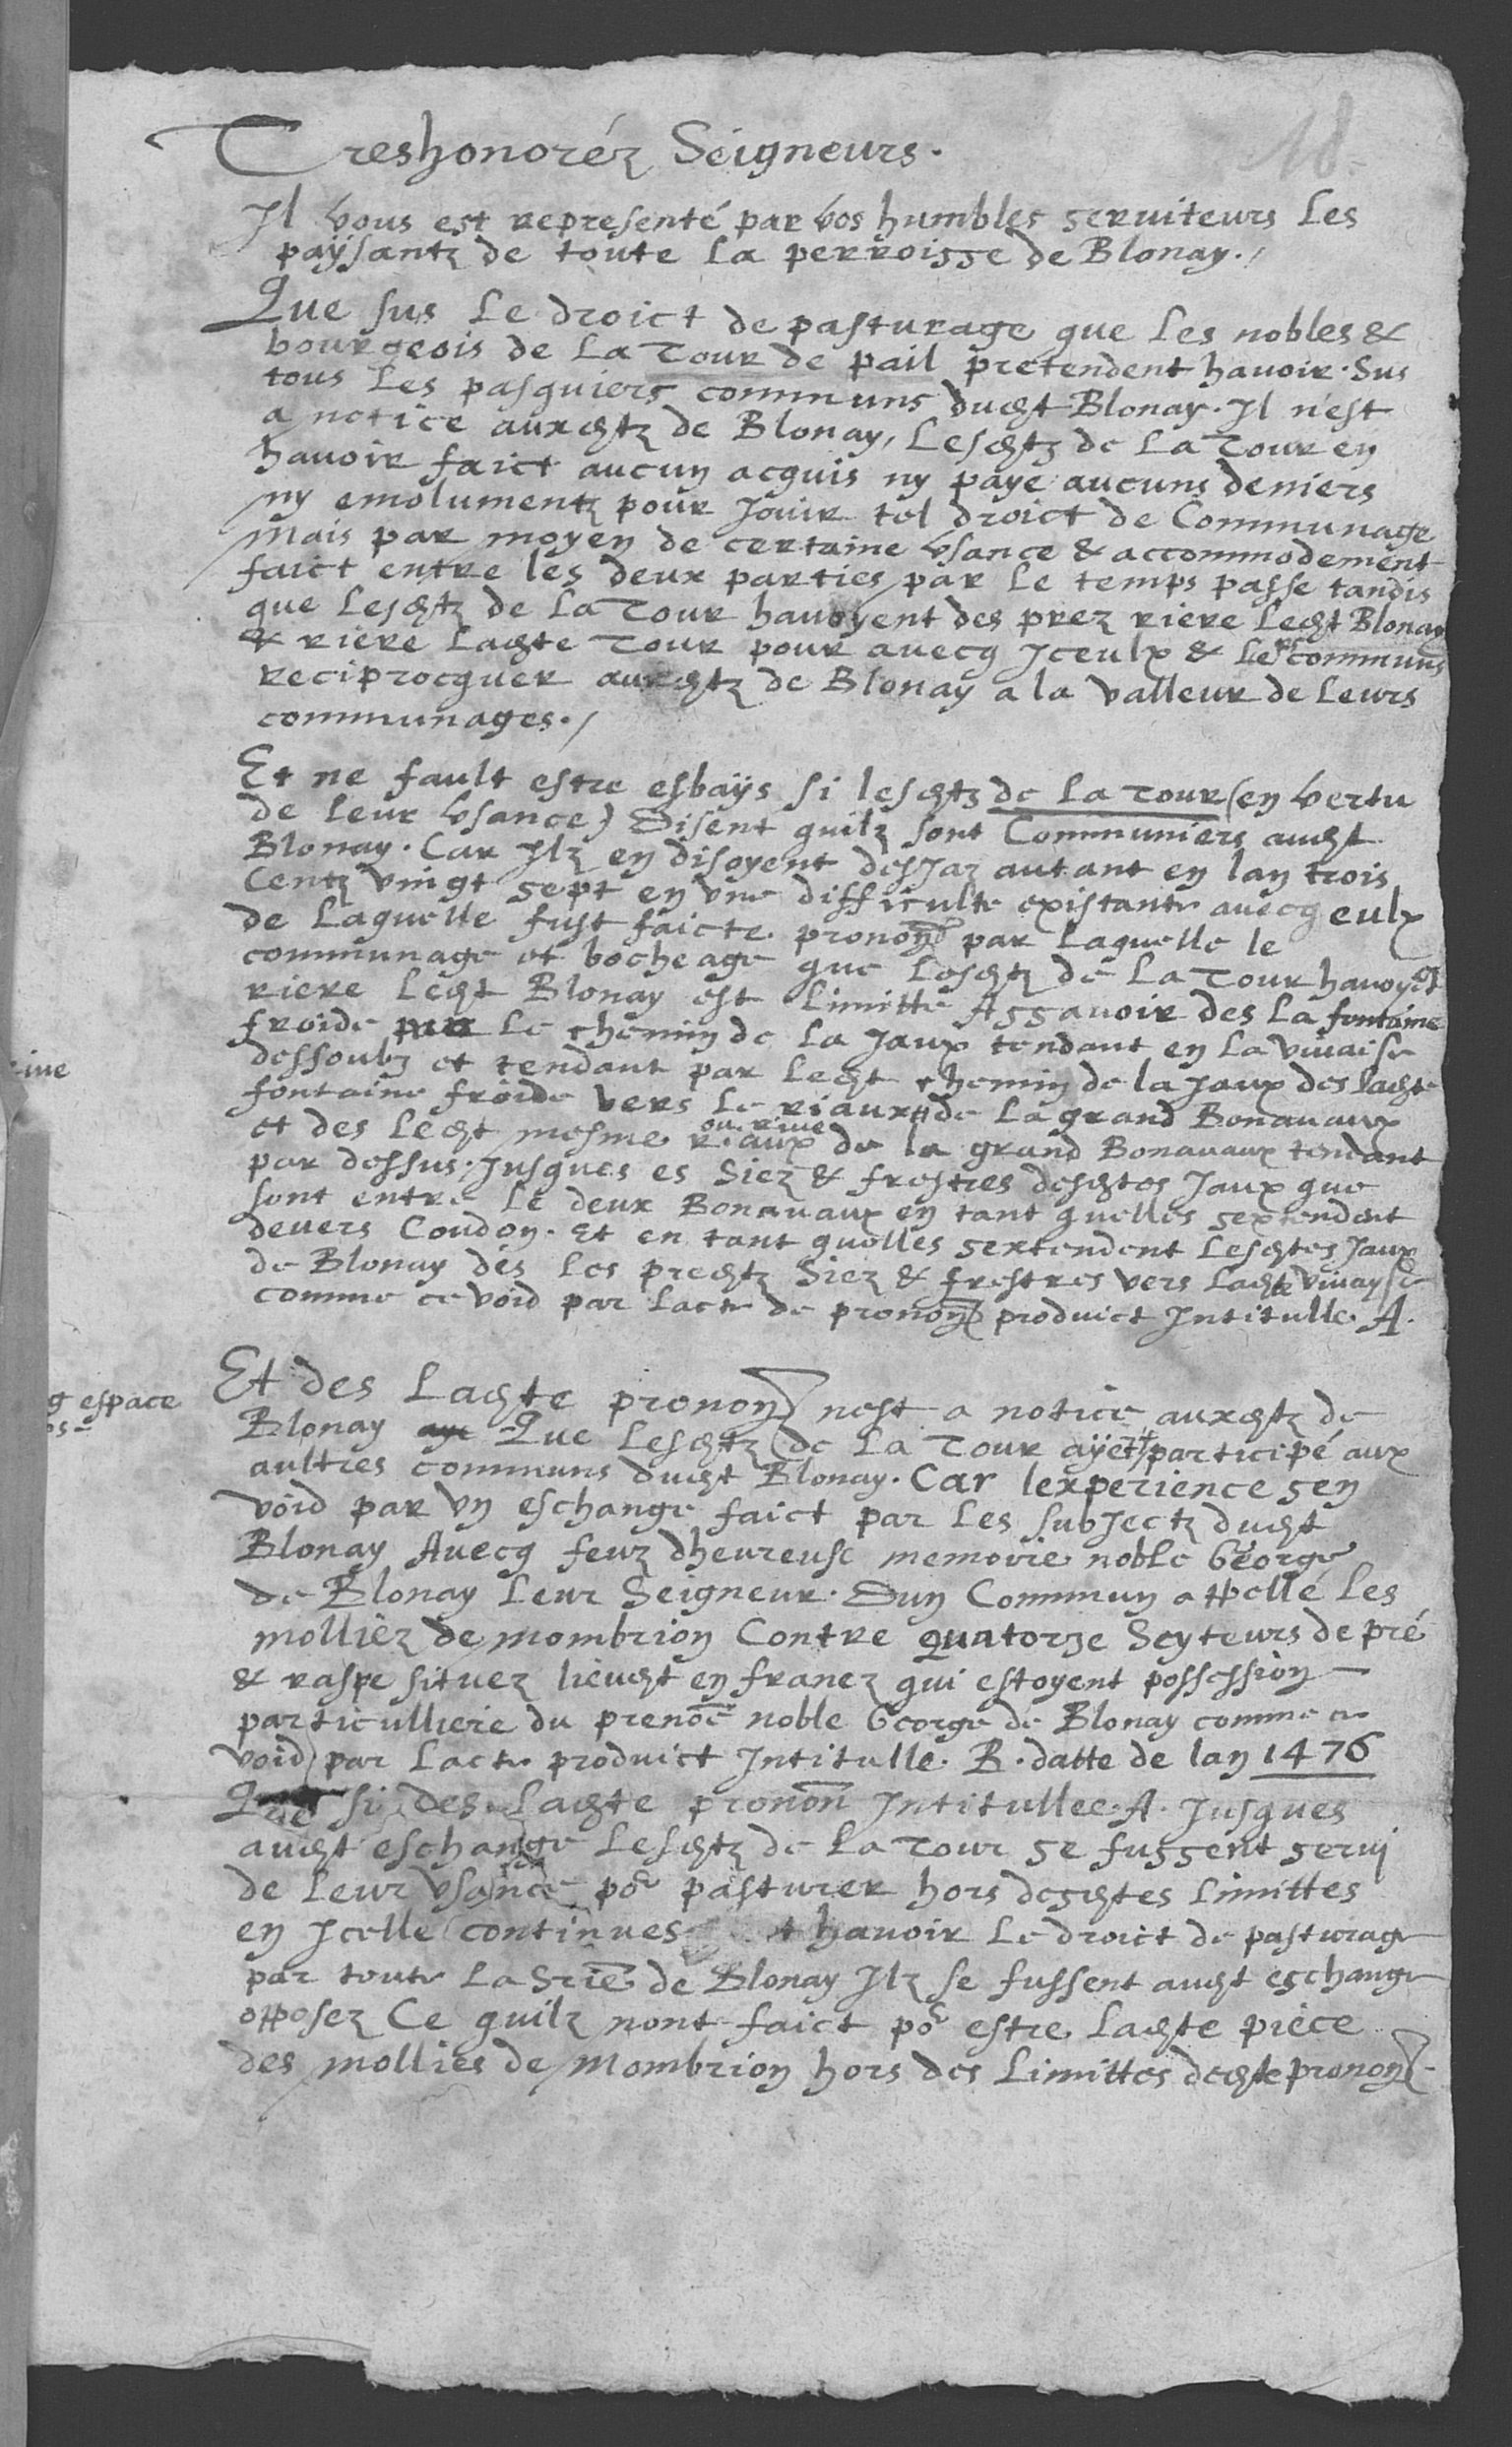 18.
Treshonoréz Seigneurs.
Il vous est representé par vos humbles seruiteurs Les
paÿsantz de toute La perroisse de Blonay./
Que sus Le droict de pasturage que Les nobles &
bourgeois de La Tour de pail pretendent hauoir. Sus
tous Les pasquiers communs dudt Blonay. Il n'est
a notice auxdtz de Blonay, Lesdtz de La Tour en
hauoir faict aucun acquis ny paye aucuns deniers
ny emolumentz pour Jouir tel droict de Communage
Mais par moyen de certaine vsance & accommodement
faict entre les deux parties par Le temps passe tandis
que Lesdtz de La Tour hauoyent des prez riere Ledt Blonay
& riere Ladte Tour pour auecq Iceulx & Lers communs
reciprocquer auxdtz de Blonay a la valleur de Leurs
communages./
Et ne fault estre esbaÿs si lesdtz de La Tour (en vertu
de Leur vsance) Disent quilz sont Communiers audt
Blonay. Car Ilz en disoyent desJaz autant en lan trois
Centz vingt sept en vne difficulte existante auecq eulx
de Laquelle fust faicte prononõ par Laquelle le
communage et bocheage que Lesdtz de La Tour hauoyẽt
riere Ledt Blonay est Limitte Assauoir des La fontaine
froide par Le chemin de La Jaux tendant en La viuaise
dessoubz et tendant par Ledt chemin de la Jaux des ladte
fontaine froide vers Le riaux de La grand Bonauaux
ou riue
et des Ledt mesme riaux de la grand Bonauaux tendant
par dessus. Jusques es Siez & frestres desdtes Jaux que
sont entre Le deux Bonauaux en tant quelles sextendent
deuers Coudon. Et en tant quelles sextendent Lesdtes Jaux
de Blonay dés Les predtz Siez & frestres vers Ladte viuayse
comme ce void par Lacte de pronon produict Intitulle. A.
Et des Ladte pronon nest a notice auxdtz de
g espace
Blonay aye Que Lesdtz de La Tour aÿẽt participé aux
aultres communs dudt Blonay. Car lexperience sen
void par vn eschange faict par Les subJectz dudt
Blonay Auecq feuz dheureuse memoire noble George
de Blonay Leur Seigneur. Dun Commun appellé Les
molliez de mombrion Contre quatorze Seyteurs de pré
& raspe situez lieudt en franez qui estoyent possession
particulliere du prenõe noble George de Blonay comme ce
void par Lacte produict Intitulle. B. datte de lan 1476
Que si des Ladte pronon Intitullee. A. Jusques
audt eschange Lesdtz de La Tour se fussent serui
de Leur vsance põ pasturer hors desdtes Limittes
en Icelle continues t hauoir Le droict de pasturage
par toute La Srie de Blonay Ilz se fussent audt eschange
opposez Ce quilz nont faict põ estre Ladte piece
des mollies de Mombrion hors des Limittes dedte pronon